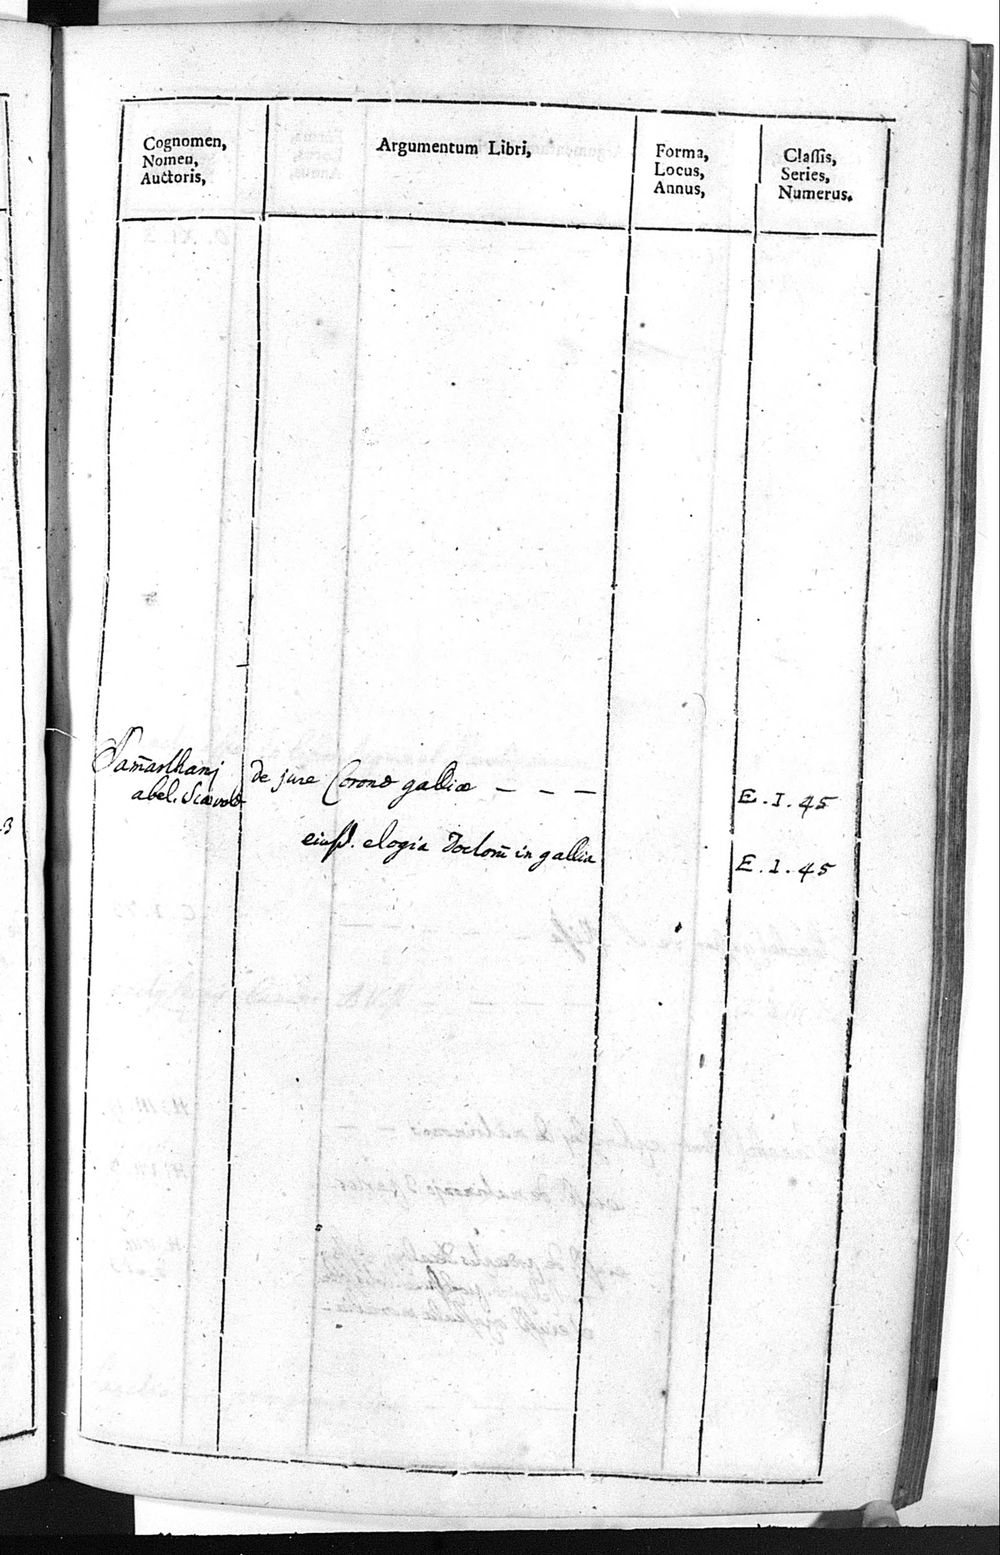 Cognomen,
Nomen,
Auctoris,
Argumentum Libri,
Forma,
Locus,
Annus,
Classis,
Series,
Numerus.
Sam̄arthanj de jure Coronæ galliæ – – – E. I. 45
abel. Scævola
eiusd. elogia doctorū in gallia E. I. 45
3